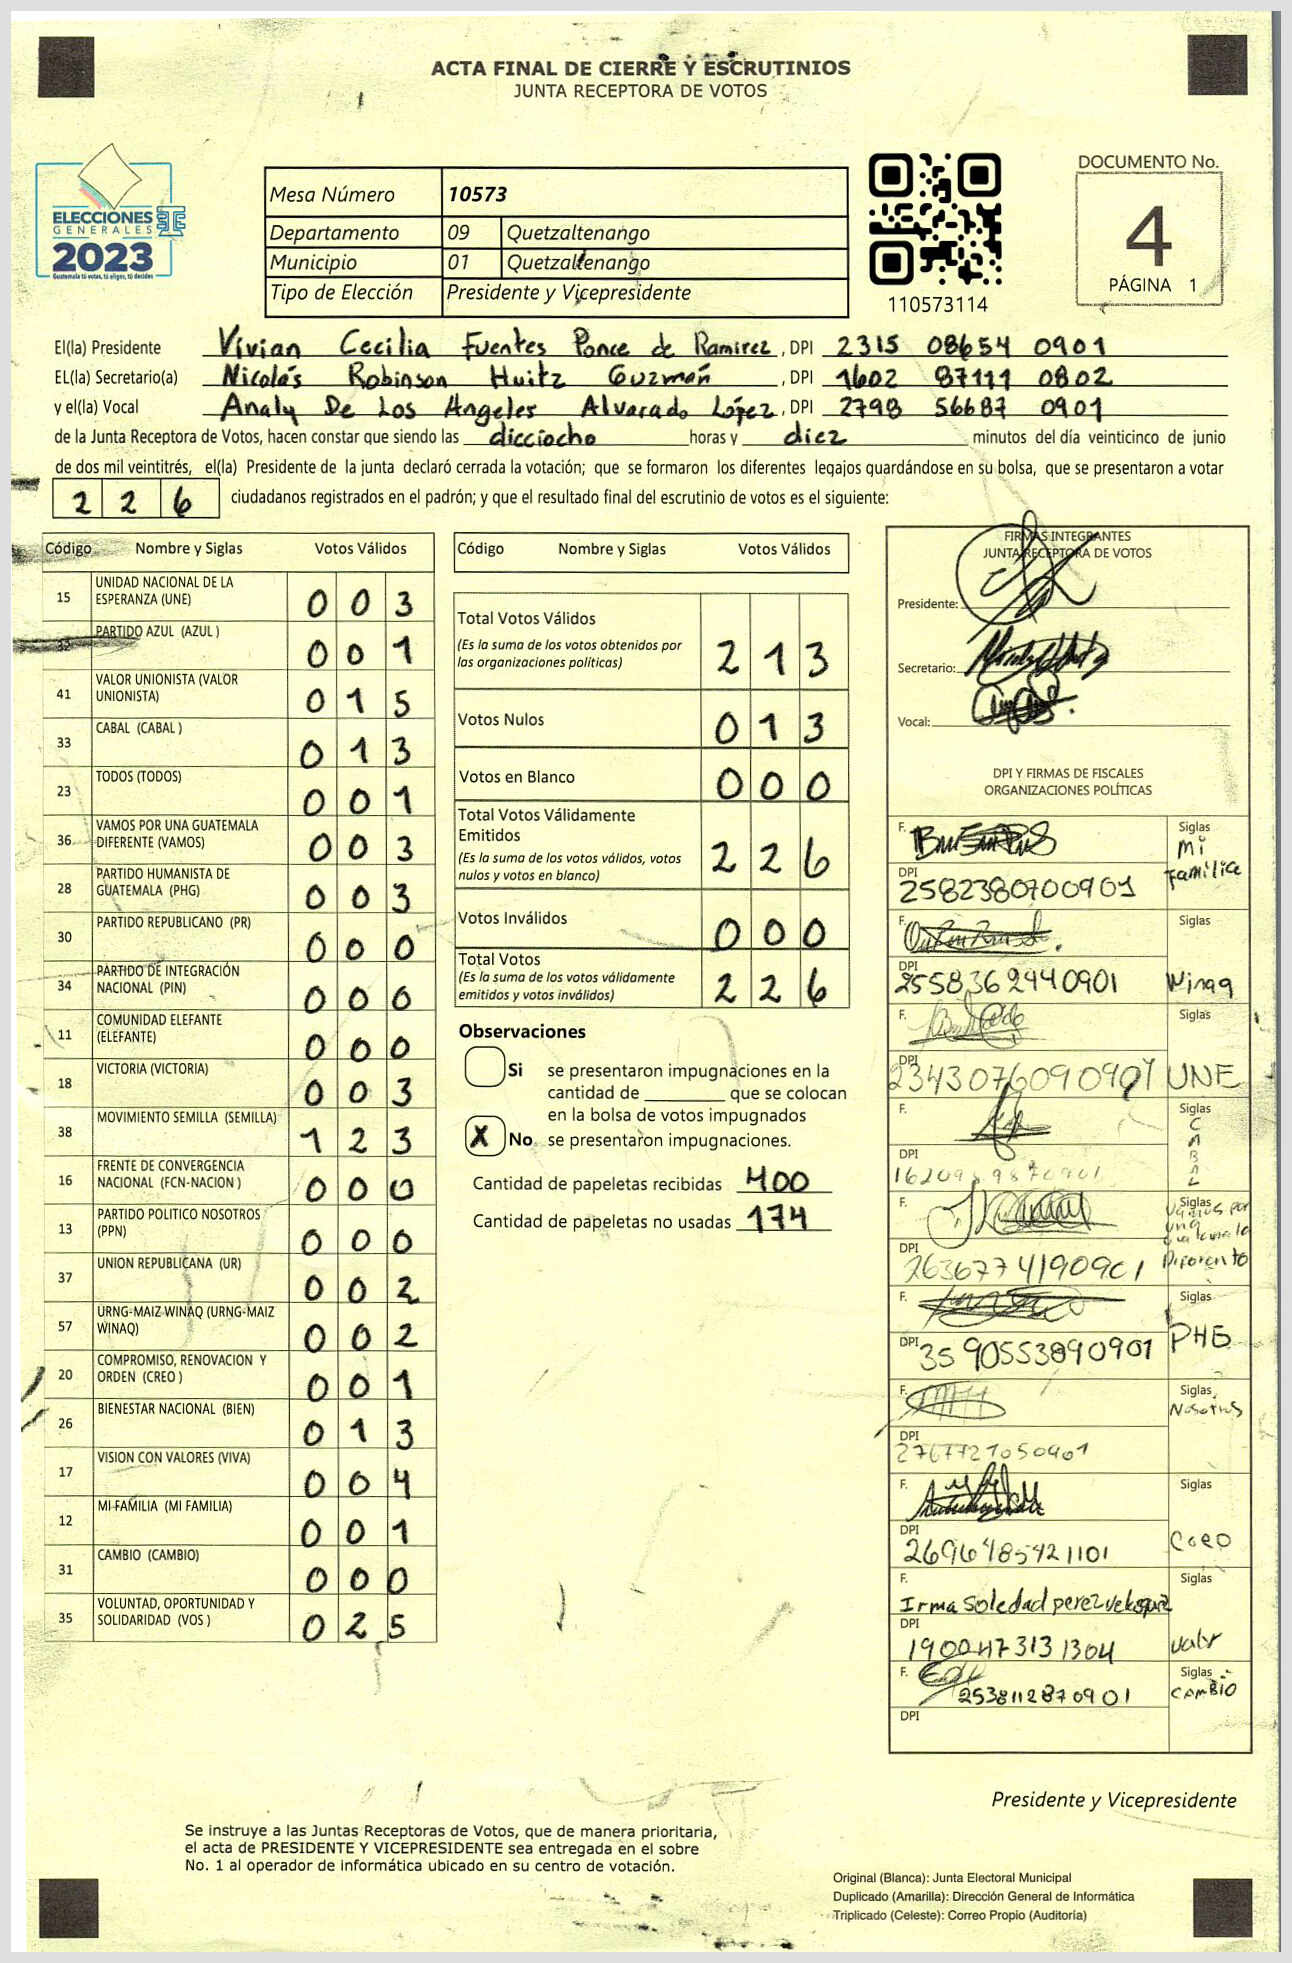 ACTA FINAL DE CIERRE Y ESCRUTINIOS
JUNTA RECEPTORA DE VOTOS
ELECCIONES
GENERALES
2023
Guatemala tú votas, tú eliges, tú decides
Mesa Número 10573
Departamento 09 Quetzaltenango
Municipio 01 Quetzaltenango
Tipo de Elección Presidente y Vicepresidente
110573114
DOCUMENTO No.
4
PÁGINA 1
El(la) Presidente Vivian Cecilia Fuentes Ponce de Ramirez, DPI 2315 08654 0901
EL(la) Secretario(a) Nicolás Robinson Huitz Guzmán, DPI 1602 87111 0802
y el(la) Vocal Analy De Los Angeles Alvarado López, DPI 2798 56687 0901
de la Junta Receptora de Votos, hacen constar que siendo las dicciocho horas y diez minutos del día veinticinco de junio
de dos mil veintitrés, el(la) Presidente de la junta declaró cerrada la votación; que se formaron los diferentes legajos guardándose en su bolsa, que se presentaron a votar
226 ciudadanos registrados en el padrón; y que el resultado final del escrutinio de votos es el siguiente:
Código Nombre y Siglas Votos Válidos
15 UNIDAD NACIONAL DE LA ESPERANZA (UNE) 003
32 PARTIDO AZUL (AZUL ) 001
41 VALOR UNIONISTA (VALOR UNIONISTA) 015
33 CABAL (CABAL ) 013
23 TODOS (TODOS) 001
36 VAMOS POR UNA GUATEMALA DIFERENTE (VAMOS) 003
28 PARTIDO HUMANISTA DE GUATEMALA (PHG) 003
30 PARTIDO REPUBLICANO (PR) 000
34 PARTIDO DE INTEGRACIÓN NACIONAL (PIN) 000
11 COMUNIDAD ELEFANTE (ELEFANTE) 000
18 VICTORIA (VICTORIA) 003
38 MOVIMIENTO SEMILLA (SEMILLA) 123
16 FRENTE DE CONVERGENCIA NACIONAL (FCN-NACION ) 000
13 PARTIDO POLITICO NOSOTROS (PPN) 000
37 UNION REPUBLICANA (UR) 002
57 URNG-MAIZ WINAQ (URNG-MAIZ WINAQ) 002
20 COMPROMISO, RENOVACION Y ORDEN (CREO ) 001
26 BIENESTAR NACIONAL (BIEN) 013
17 VISION CON VALORES (VIVA) 004
12 MI FAMILIA (MI FAMILIA) 001
31 CAMBIO (CAMBIO) 000
35 VOLUNTAD, OPORTUNIDAD Y SOLIDARIDAD (VOS ) 025
Código Nombre y Siglas Votos Válidos
Total Votos Válidos 213
(Es la suma de los votos obtenidos por
las organizaciones politicas)
Votos Nulos 013
Votos en Blanco 000
Total Votos Válidamente
Emitidos 226
(Es la suma de los votos válidos, votos
nulos y votos en blanco)
Votos Inválidos 000
Total Votos 226
(Es la suma de los votos válidamente
emitidos y votos inválidos)
Observaciones
Si se presentaron impugnaciones en la
cantidad de ________ que se colocan
en la bolsa de votos impugnados
X No se presentaron impugnaciones.
Cantidad de papeletas recibidas 400
Cantidad de papeletas no usadas 174
FIRMAS INTEGRANTES
JUNTA RECEPTORA DE VOTOS
Presidente:
Secretario:
Vocal:
DPI Y FIRMAS DE FISCALES
ORGANIZACIONES POLÍTICAS
F. Siglas
Mi familia
DPI 2582380700901
F. Siglas
DPI 2558362440901 Winaq
F. Siglas
DPI UNE
F. Siglas
CABAL
DPI
F. Siglas
Vamos por una Guatemala Diferente
DPI 2636774190901
F. Siglas
PHG
DPI 3590553890901
F. Siglas
Nosotros
DPI 2767721050901
F. Siglas
DPI 2696485421101 Creo
F. Irma Soledad perez Velasquez Siglas
DPI 1900473131304 Valor
F. Siglas
2538112870901 CAMBIO
DPI
Presidente y Vicepresidente
Se instruye a las Juntas Receptoras de Votos, que de manera prioritaria,
el acta de PRESIDENTE Y VICEPRESIDENTE sea entregada en el sobre
No. 1 al operador de informática ubicado en su centro de votación.
Original (Blanca): Junta Electoral Municipal
Duplicado (Amarilla): Dirección General de Informática
Triplicado (Celeste): Correo Propio (Auditoría)